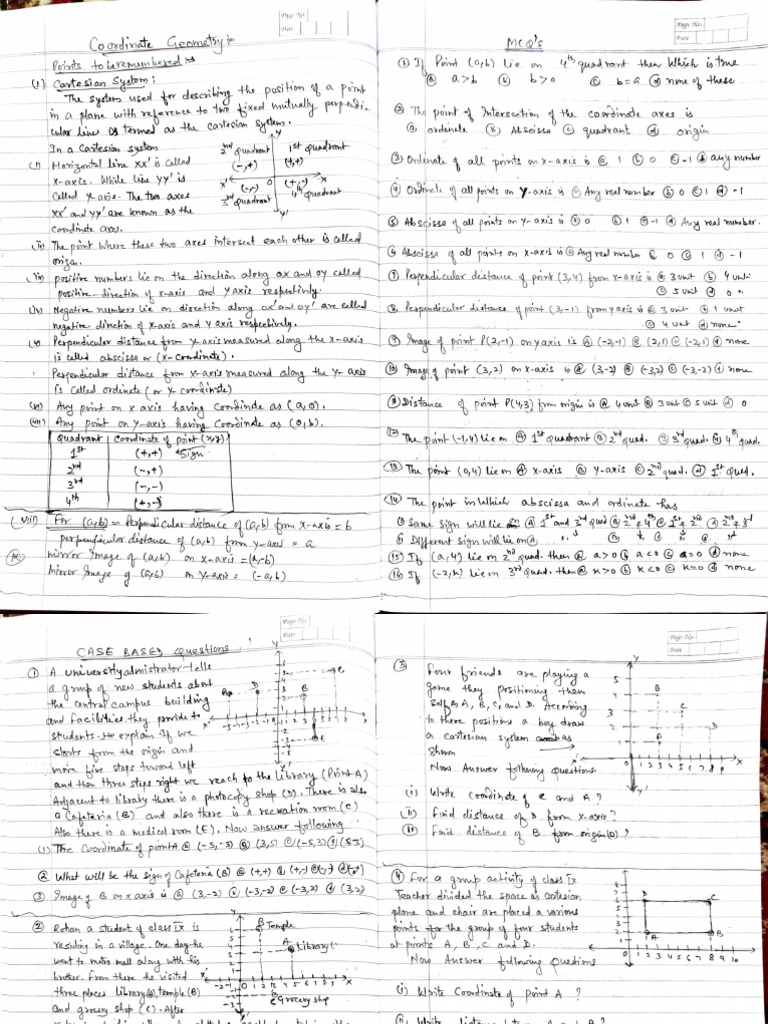 Coordinate Geometry:-
Points to be remembered →
(1) Cartesian System:
The system used for describing the position of a point
in a plane with reference to two fixed mutually perpendi-
cular lines is termed as the cartesian system.
In a Cartesian system
(i) Horizontal line XX' is called
x-axis. While line YY' is
called y axis. The two axes
XX' and YY' are known as the
coordinate axes.
2nd quadrant (-,+)
1st quadrant (+,+)
(-,-) 3rd quadrant
(+,-) 4th quadrant
X' O X
Y
Y'
(ii) The point where these two axes intersect each other is called
origin.
(iii) positive numbers lie on the direction along ox and oy called
positive direction of x-axis and y axis respectively.
(iv) Negative numbers lie on direction along ox' and oy' are called
negative direction of x-axis and y axis respectively.
(v) Perpendicular distance from y-axis measured along the x-axis
is called abscissa or (x-coordinate).
Perpendicular distance from x-axis measured along the y-axis
is called ordinate (or y-coordinate)
(vi) Any point on x axis having coordinate as (a,0).
(vii) Any point on y-axis having coordinate as (0,b).
Quadrant Coordinate of point (x,y)
1st (+,+) ← Sign
2nd (-,+)
3rd (-,-)
4th (+,-)
(viii) For (a,b) = Perpendicular distance of (a,b) from x-axis = b
perpendicular distance of (a,b) from y-axis = a
mirror image of (a,b) on x-axis = (a,-b)
Mirror Image of (a,b) on y-axis = (-a,b)
Page No.
Date
MCQ's
① If Point (a,b) lie on 4th quadrant then which is true
ⓐ a>b ⓑ b>a ⓒ b=a ⓓ none of these
② The point of Intersection of the coordinate axes is
ⓐ ordinate ⓑ Abscissa ⓒ quadrant ⓓ origin
③ Ordinate of all points on x-axis is ⓐ 1 ⓑ 0 ⓒ -1 ⓓ any number
④ Ordinate of all points on y-axis is ⓐ Any real number ⓑ 0 ⓒ 1 ⓓ -1
⑤ Abscissa of all points on y-axis is ⓐ 0 ⓑ 1 ⓒ -1 ⓓ Any real number.
⑥ Abscissa of all points on x-axis is ⓐ Any real number ⓑ 0 ⓒ 1 ⓓ -1
⑦ Perpendicular distance of point (3,4) from x-axis is ⓐ 3 unit ⓑ 4 unit
ⓒ 5 unit ⓓ 0
⑧ Perpendicular distance of point (3,-1) from y axis is ⓐ 3 unit ⓑ 1 unit
ⓒ 4 unit ⓓ none
⑨ Image of point P(2,-1) on y axis is ⓐ (-2,-1) ⓑ (2,1) ⓒ (-2,1) ⓓ none
⑩ Image of point (3,2) on x-axis is ⓐ (3,-2) ⓑ (-3,2) ⓒ (-3,-2) ⓓ none
⑪ Distance of point P(4,3) from origin is ⓐ 4 unit ⓑ 3 unit ⓒ 5 unit ⓓ 0
⑫ The point (-1,4) lie in ⓐ 1st Quadrant ⓑ 2nd quad. ⓒ 3rd quad. ⓓ 4th quad.
⑬ The point (0,4) lie in ⓐ x-axis ⓑ y-axis ⓒ 2nd quad. ⓓ 1st Quad.
⑭ The point in which abscissa and ordinate has
① Same sign will lie in ⓐ 1st and 3rd quad ⓑ 2nd & 4th ⓒ 1st & 2nd ⓓ 2nd & 3rd
② Different sign will lie in
⑮ If (a,4) lie in 2nd quad. then ⓐ a>0 ⓑ a<0 ⓒ a=0 ⓓ none
⑯ If (-2,k) lie in 3rd Quad. then ⓐ k>0 ⓑ k<0 ⓒ k=0 ⓓ none
CASE BASED questions:
① A university admistrator tells
a group of new students about
the central campus building
and facilities they provide to
students. He explain If we
starts from the origin and
move five steps toward left
and then three steps right we reach to the Library (Point A)
Adjacent to library there is a photocopy shop (D). There is also
a Cafeteria (B) and also there is a recreation room (C)
Also there is a medical room (E). Now answer following
(1) The coordinate of point A ⓐ (-5,-3) ⓑ (3,5) ⓒ (-5,3) ⓓ (5,3)
② What will be the sign of Cafeteria (B)
③ Image of B on x axis is ⓐ (3,-2) ⓑ (-3,-2) ⓒ (-3,2) ⓓ (3,2)
② Rohan a student of class IX is
residing in a village. One day he
went to metro mall along with his
brother. From there he visited
three places library(A), temple (B)
and grocery shop (C). After
B Temple
A Library
C Grocery shop
Page No.
Date
③ Four friends are playing a
game they positioning them
self as A, B, C, and D. According
to there positions a boy draw
a cartesian system as
shown
Now Answer following questions
(i) Write coordinate of C and A ?
(ii) Find distance of D from x-axis ?
(iii) Find distance of B from origin(o) ?
④ For a group activity of class IX
Teacher divided the space as cartesian
plane and chair are placed a various
points for the group of four students
at points A, B, C and D.
Now Answer following questions
(i) Write Coordinate of point A ?